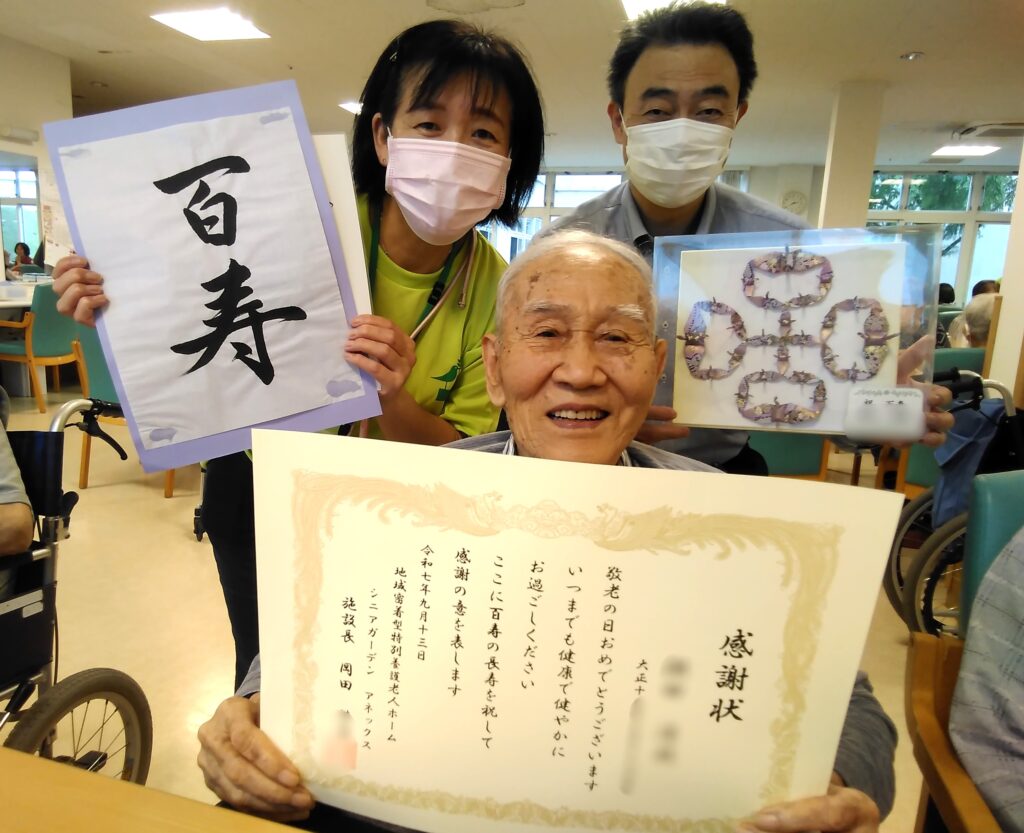 百寿
感謝状
大正十
敬老の日おめでとうございます
いつまでも健康で健やかに
お過ごしください
ここに百寿の長寿を祝して
感謝の意を表します
令和七年九月十三日
地域密着型特別養護老人ホーム
シニアガーデン アネックス
施設長 岡田